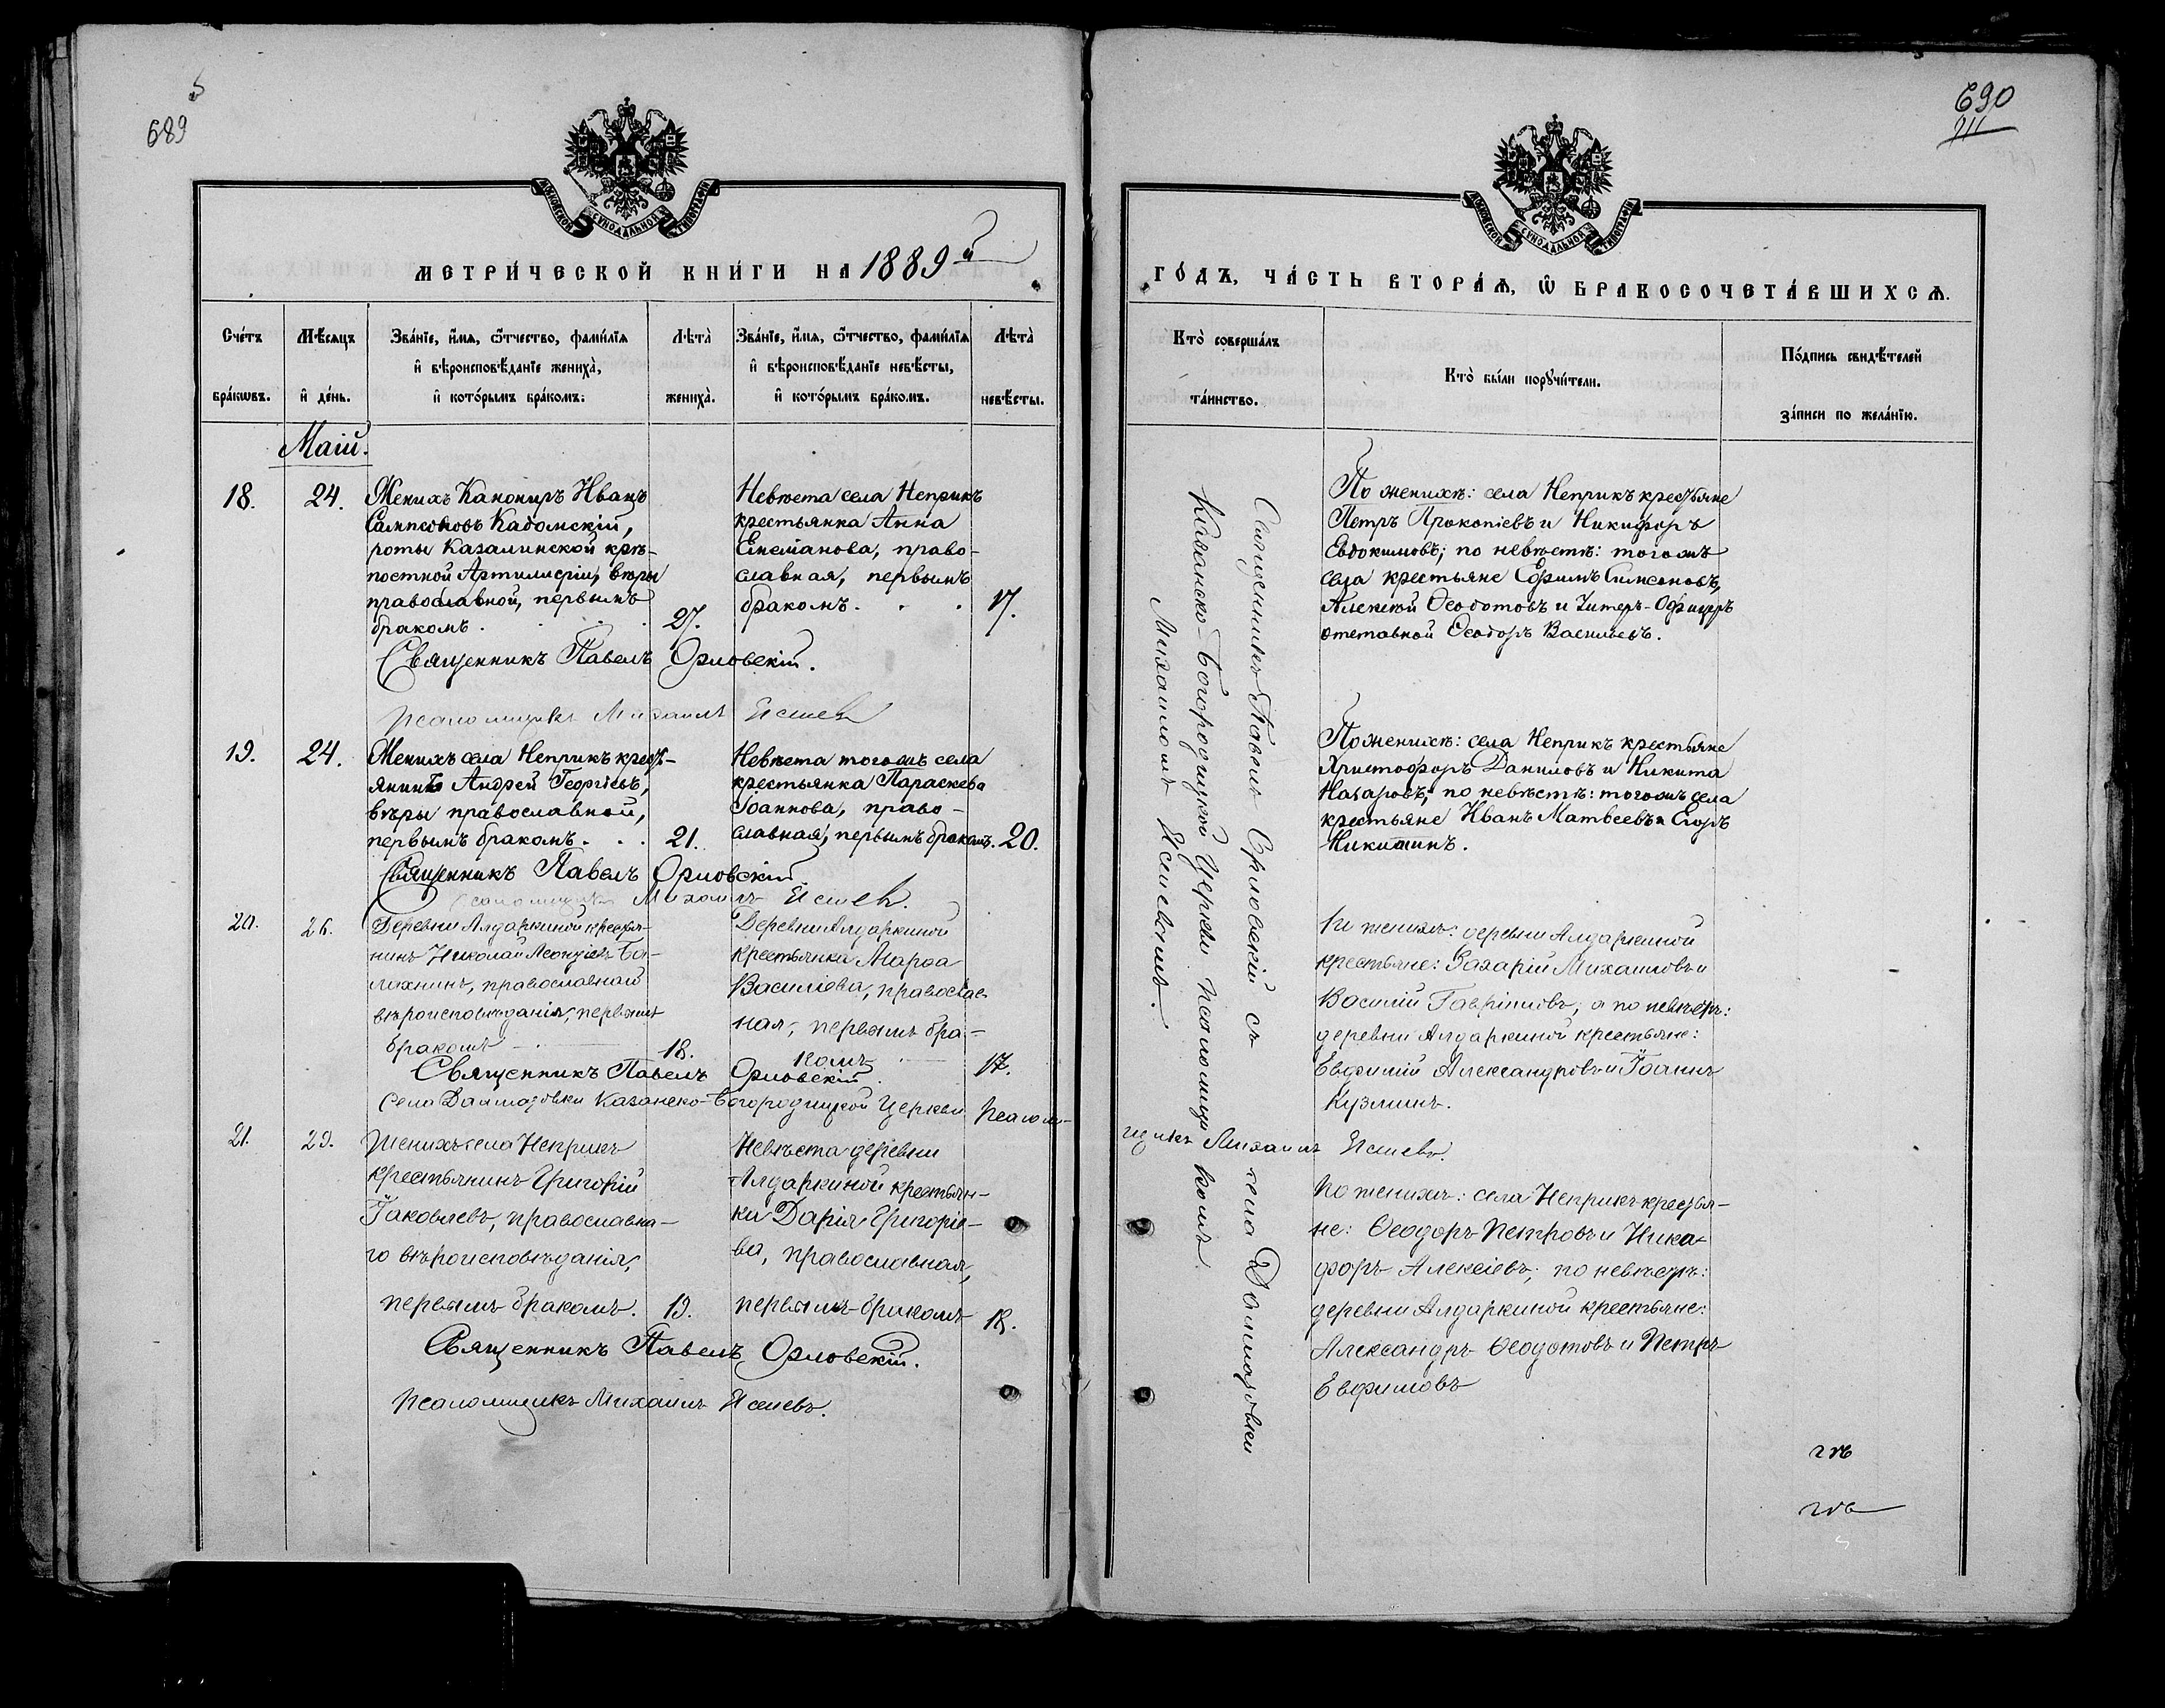 689
МОСКОВСКОЙ СѴНОДАЛЬНОЙ ТИПОГРАФІИ
МЕТРИ́ЧЕСКОЙ КНИ́ГИ НА 1889й
Сче́тъ бра́кωвъ.
Мѣ́сяцъ и҆ де́нь.
Зва́нїе, и҆́мѧ, ѻ҆́тчество, фами́лїѧ
и҆ вѣроисповѣ́данїе жениха̀,
и҆ кото́рымъ бра́комъ.
Лѣта̀ жениха̀.
Зва́нїе, и҆́мѧ, ѻ҆́тчество, фами́лїѧ
и҆ вѣроисповѣ́данїе невѣ́сты,
и҆ кото́рымъ бра́комъ.
Лѣта̀ невѣ́сты.
Маій.
18.
24.
Женихъ Канониръ Иванъ
Сампсоновъ Кадомскій,
роты Казалинской крѣ-
постной Артиллеріи, вѣры
православной, первымъ
бракомъ . . . .
27.
Невѣста села Неприкъ
крестьянка Анна
право-
славная, первымъ
бракомъ. . .
17.
Священникъ Павелъ Орловскій.
Псаломщикъ Михаилъ Исаевъ
19.
24.
Женихъ села Неприкъ кресть-
янинъ Андрей Георгіевъ,
вѣры православной,
первымъ бракомъ. . .
21.
Невѣста тогожъ села
крестьянка Параскева
Іоаннова, право-
славная, первымъ бракомъ.
20.
Священникъ Павелъ Орловскій.
Псаломщикъ Михаилъ Исаевъ.
20.
26.
Деревни Алдаркиной крестья-
нинъ Николай Леонтіевъ Ба-
лахнинъ, православнаго
вѣроисповѣданія, первымъ
бракомъ
18.
Деревни Алдаркиной
крестьянка Марѳа
Василіева, православ-
ная, первымъ бра-
комъ
17.
Священникъ Павелъ Орловскій.
Села Далматовки Казанско-Богородицкой Церкви Псалом-
21.
29.
Женихъ села Неприкъ
крестьянинъ Григорій
Іаковлевъ, православна-
го вѣроисповѣданія,
первымъ бракомъ.
19.
Невѣста деревни
Алдаркиной крестьян-
ка Дарія Григоріе-
ва, православная,
первымъ бракомъ
18.
Священникъ Павелъ Орловскій.
Псаломщикъ Михаилъ Исаевъ.
690
МОСКОВСКОЙ СѴНОДАЛЬНОЙ ТИПОГРАФІИ
ГО́ДЪ, ЧА́СТЬ ВТОРА́Ѧ, Ѽ БРАКОСОЧЕТА́ВШИХСѦ.
Кто̀ соверша́лъ та́инство.
Кто̀ бы́ли порꙋчи́тели.
По́дпись свидѣ́телей за́писи по жела́нїю.
Священникъ Павелъ Орловскій съ села Далматовки
Казанско-Богородицкой Церкви псаломщикомъ
Михаиломъ Исаевымъ.
По женихѣ: села Неприкъ крестьяне
Петръ Прокопіевъ и Никифоръ
Евдокимовъ; по невѣстѣ: тогожъ
села крестьяне Ефимъ Симеоновъ,
Алексѣй Ѳеодотовъ и Унтеръ-Офицеръ
отставной Ѳеодоръ Васильевъ.
По женихѣ: села Неприкъ крестьяне
Христофоръ Даниловъ и Никита
Назаровъ; по невѣстѣ: тогожъ села
крестьяне Иванъ Матвеевъ и Егоръ
Никитинъ.
По женихѣ: деревни Алдаркиной
крестьяне: Захарій Михаиловъ и
Василій Гавріиловъ, а по невѣстѣ:
деревни Алдаркиной крестьяне:
Евфимій Александровъ и Іоаннъ
Кузминъ.
щикъ Михаилъ Исаевъ.
По женихѣ: села Неприкъ крестья-
не: Ѳеодоръ Петровъ и Ника-
форъ Алексіевъ; по невѣстѣ:
деревни Алдаркиной крестьяне:
Александръ Ѳеодотовъ и Петръ
Евфимовъ